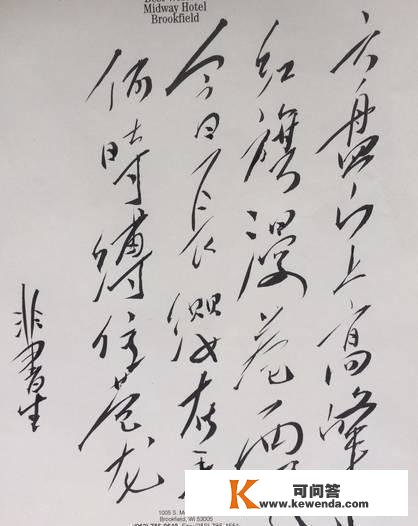 Midway Hotel
Brookfield
六盘山上高峰
红旗漫卷西风
今日长缨在手
何時縛住苍龙
非書生
1005 S.
Brookfield, WI 53005
可问答
www.kewenda.com